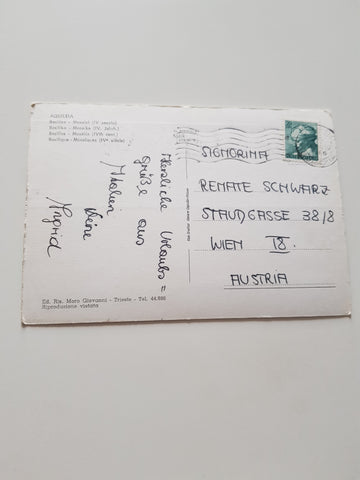 AQUILEIA
Basilica - Mosaici (IV secolo)
Basilika - Mosaike (IV. Jahrh.)
Basilica - Mosaics (IVth cent.)
Basilique - Mosaïques (IVe siècle)
Herzliche Urlaubs =
grüße aus
Italien
Deine
Ingrid
SIGNORINA
RENATE SCHWARZ
STAUDGASSE 38/8
WIEN 18.
AUSTRIA
Ed. Ris. Moro Giovanni - Trieste - Tel. 44.886
Riproduzione vietata